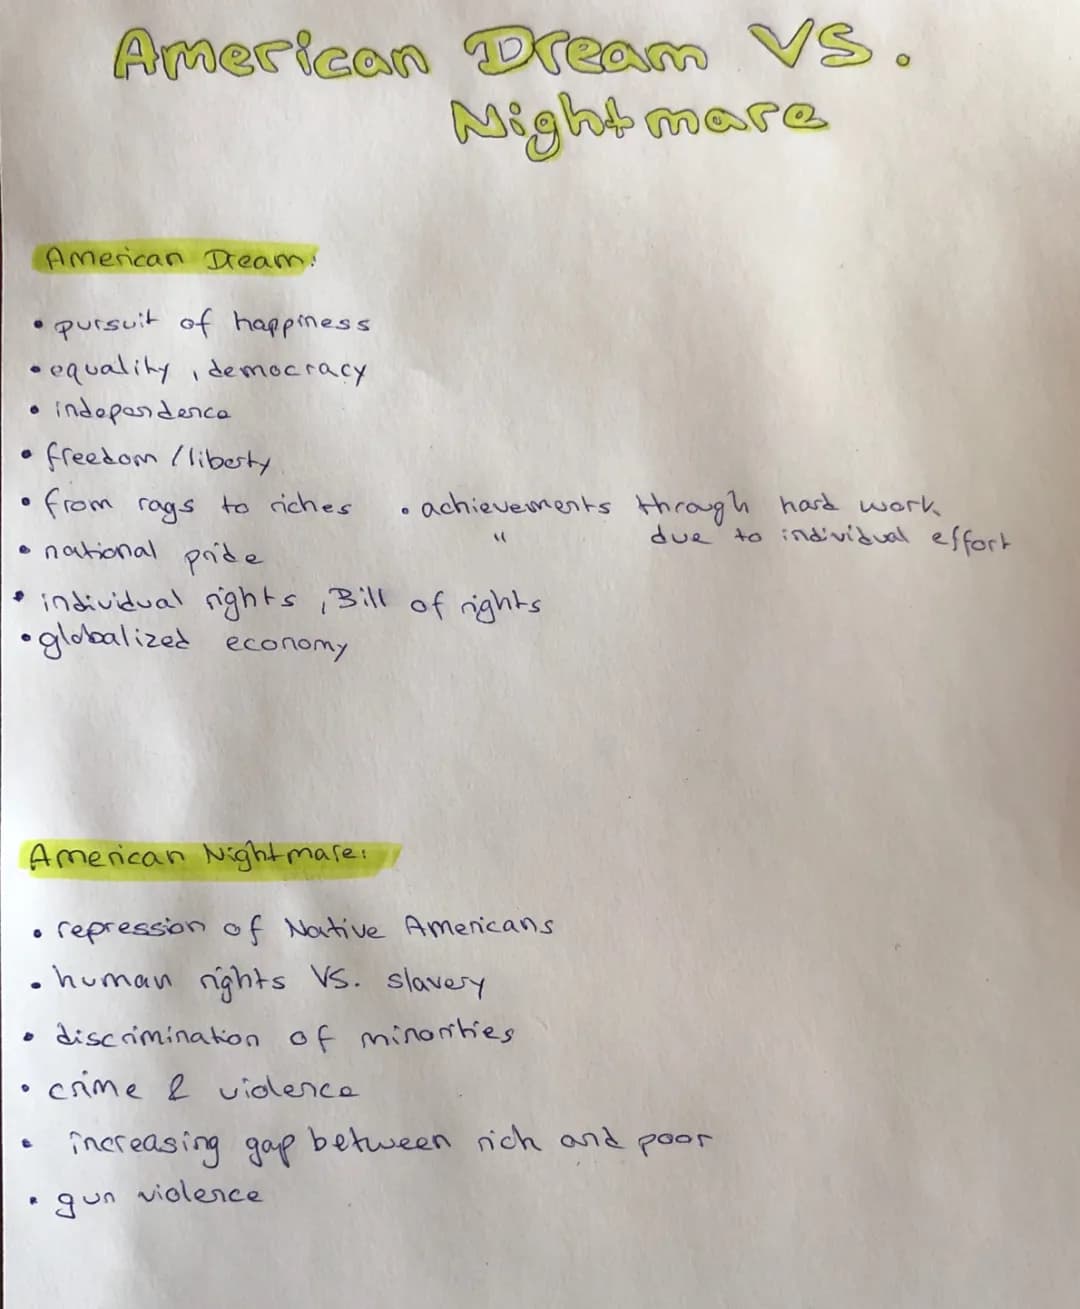 American Dream VS.
Nightmare
American Dream:
• pursuit of happiness
• equality, democracy
• independence
• freedom / liberty
• from rags to riches • achievements through hard work
" due to individual effort
• national pride
• individual rights, Bill of rights
• globalized economy
American Nightmare:
• repression of Native Americans
• human rights VS. slavery
• discrimination of minorities
• crime & violence
• increasing gap between rich and poor
• gun violence